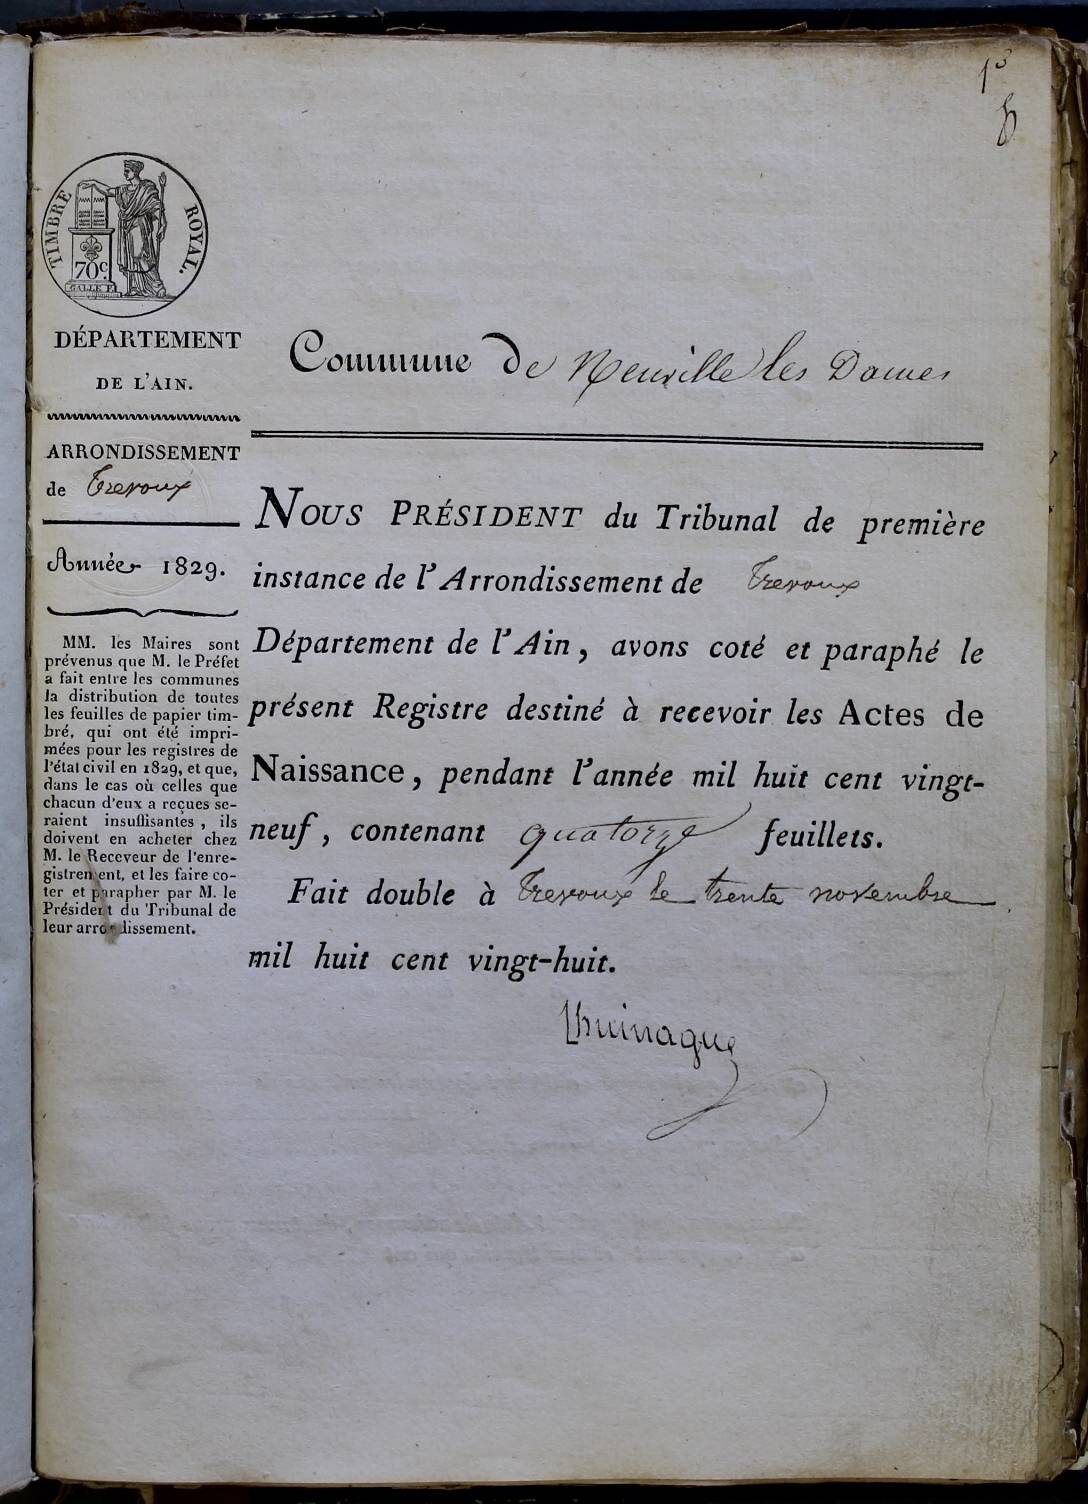 TIMBRE ROYAL.
70c.
GALLE F.
DÉPARTEMENT
DE L'AIN.
ARRONDISSEMENT
de Trevoux
Année 1829.
MM. les Maires sont
prévenus que M. le Préfet
a fait entre les communes
la distribution de toutes
les feuilles de papier tim-
bré, qui ont été impri-
mées pour les registres de
l'état civil en 1829, et que,
dans le cas où celles que
chacun d'eux a reçues se-
raient insuffisantes, ils
doivent en acheter chez
M. le Receveur de l'enre-
gistrement, et les faire co-
ter et parapher par M. le
Président du Tribunal de
leur arrondissement.
Commune de Neuville les Dames
NOUS PRÉSIDENT du Tribunal de première
instance de l'Arrondissement de Trevoux
Département de l'Ain, avons coté et paraphé le
présent Registre destiné à recevoir les Actes de
Naissance, pendant l'année mil huit cent vingt-
neuf, contenant quatorze feuillets.
Fait double à Trevoux le trente novembre
mil huit cent vingt-huit.